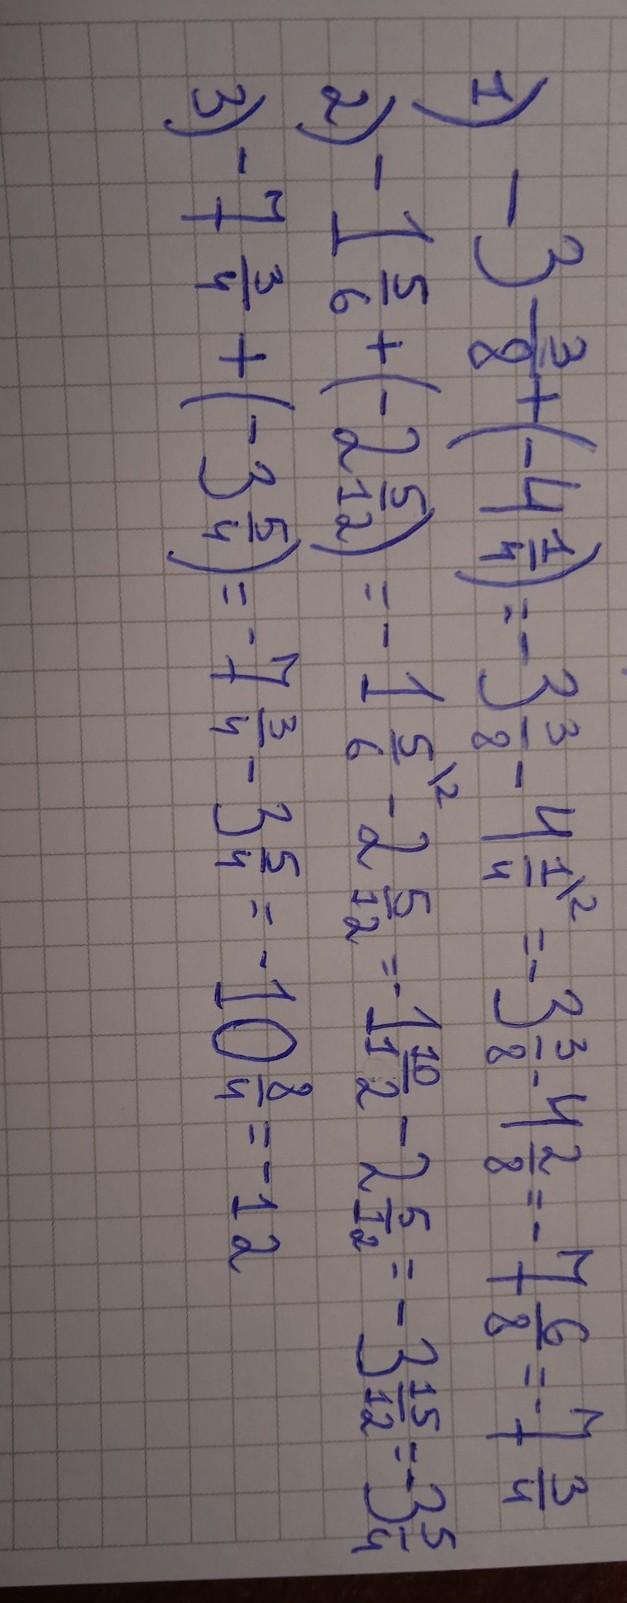 1) - 3 3/8 + (- 4 1/4) = - 3 3/8 - 4 1/4\2 = - 3 3/8 - 4 2/8 = - 7 6/8 = - 7 3/4
2) - 1 5/6 + (- 2 5/12) = - 1 5/6\2 - 2 5/12 = - 1 10/12 - 2 5/12 = - 3 15/12 = - 3 5/4
3) - 7 3/4 + (- 3 5/4) = - 7 3/4 - 3 5/4 = - 10 8/4 = - 12